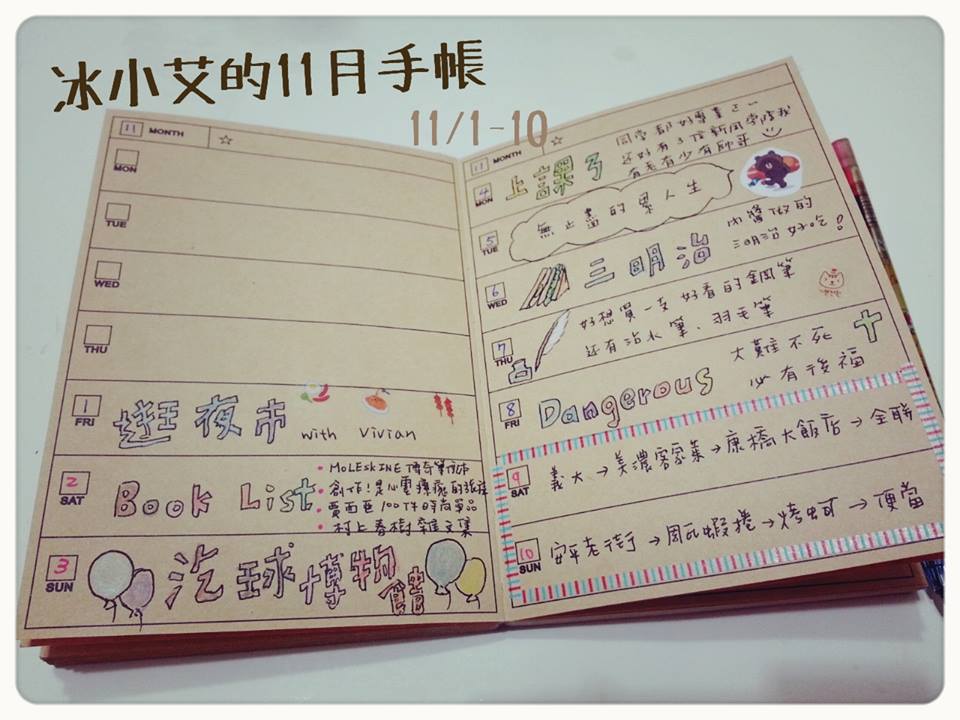 冰小艾的11月手帳
11/1-10
11 MONTH ☆
MON
TUE
WED
THU
1 FRI
逛夜市 with Vivian
2 SAT
Book List
• MOLESKINE 傳奇筆記本
• 創作!是心靈療癒的旅程
• 賈西亞100件時尚單品
• 村上春樹雜文集
3 SUN
汽球博物館
11 MONTH ☆
4 MON
上課ㄋ
同學都好專業ㄛ
還好有3位新同學陪我
有老有少有帥哥
5 TUE
無止盡的累人生
6 WED
三明治
內醬做的
三明治好吃!
7 THU
好想買一支好看的鋼筆
還有沾水筆、羽毛筆
8 FRI
Dangerous
大難不死
必有後福
9 SAT
義大→美濃客家菜→康橋大飯店→全聯
10 SUN
安平老街→周氏蝦捲→烤蚵→便當